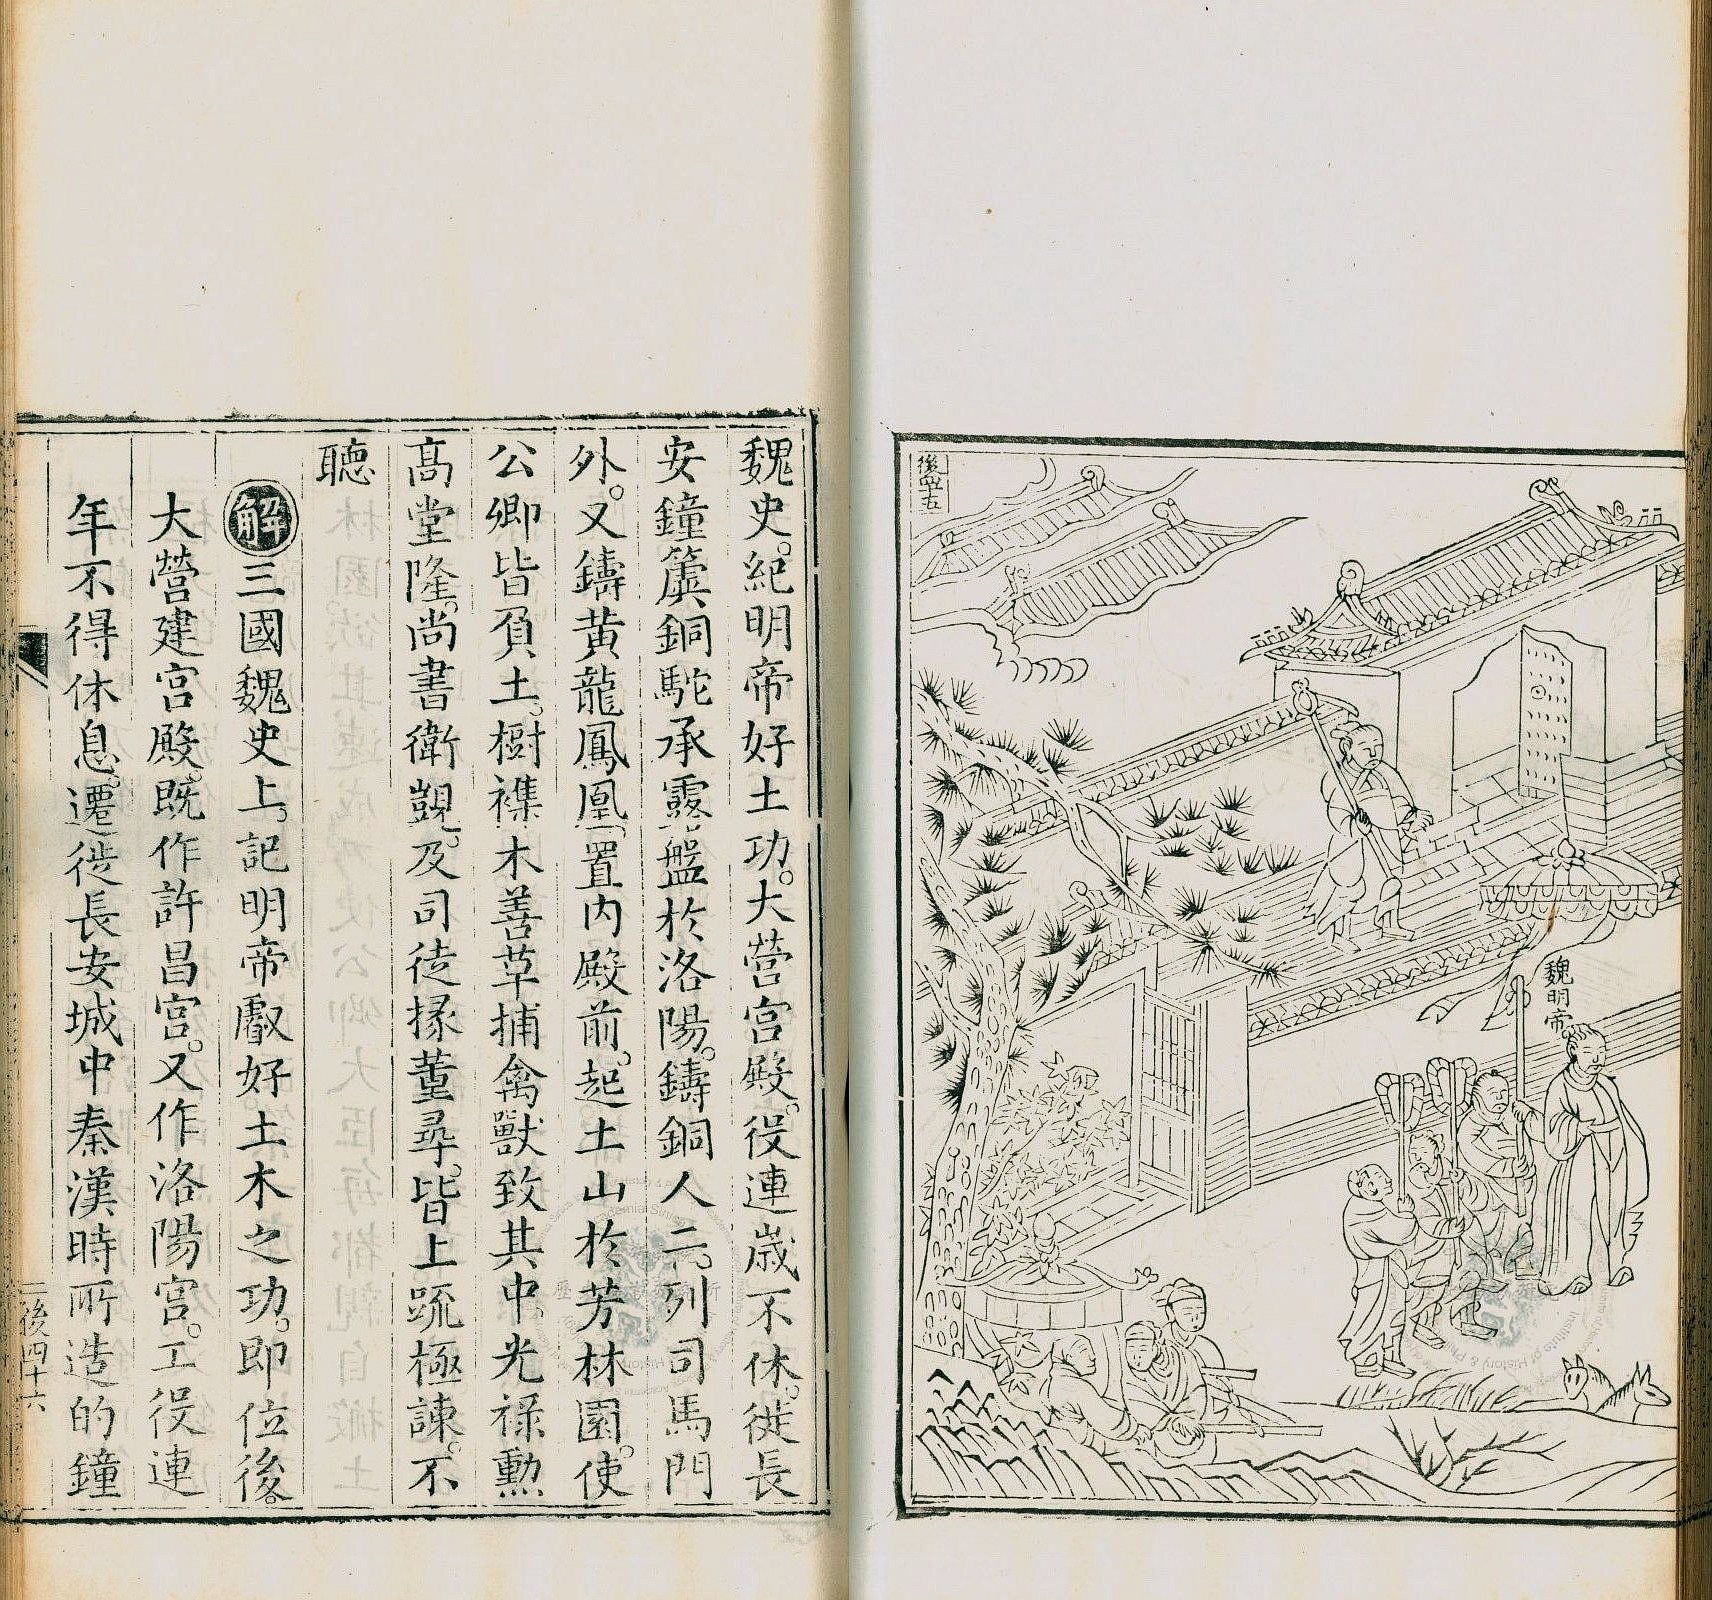 後四十五
魏明帝
魏史。紀明帝好土功。大營宮殿。役連歲不休。徙長
安鐘簴銅駝承露盤於洛陽。鑄銅人二。列司馬門
外。又鑄黃龍鳳凰。置內殿前。起土山於芳林園。使
公卿皆負土。樹襍木善草。捕禽獸致其中。光祿勳
高堂隆。尚書衛覬。及司徒掾董尋。皆上疏極諫。不
聽
解三國魏史上。記明帝叡好土木之功。即位後。
大營建宮殿。既作許昌宮。又作洛陽宮。工役連
年不得休息。遷徙長安城中秦漢時所造的鐘
後四十六